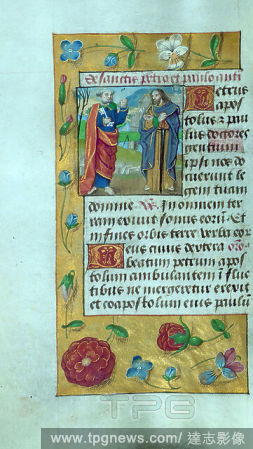 De sanctis petro et paulo anti
Petrus
apos
tolus z pau
lus doctores
gentium
ipsi nos do
cuerunt le
gem tuam
domine
In omnem ter
ram exivit sonus eorū Et
in fines orbis terre verba eor
Deus cuius dextera
beatum petrum apos
tolum ambulantem ī fluc
tibus ne mergeretur erexit
et coapostolum eius paulū
TPG
www.tpgnews.com / 達志影像